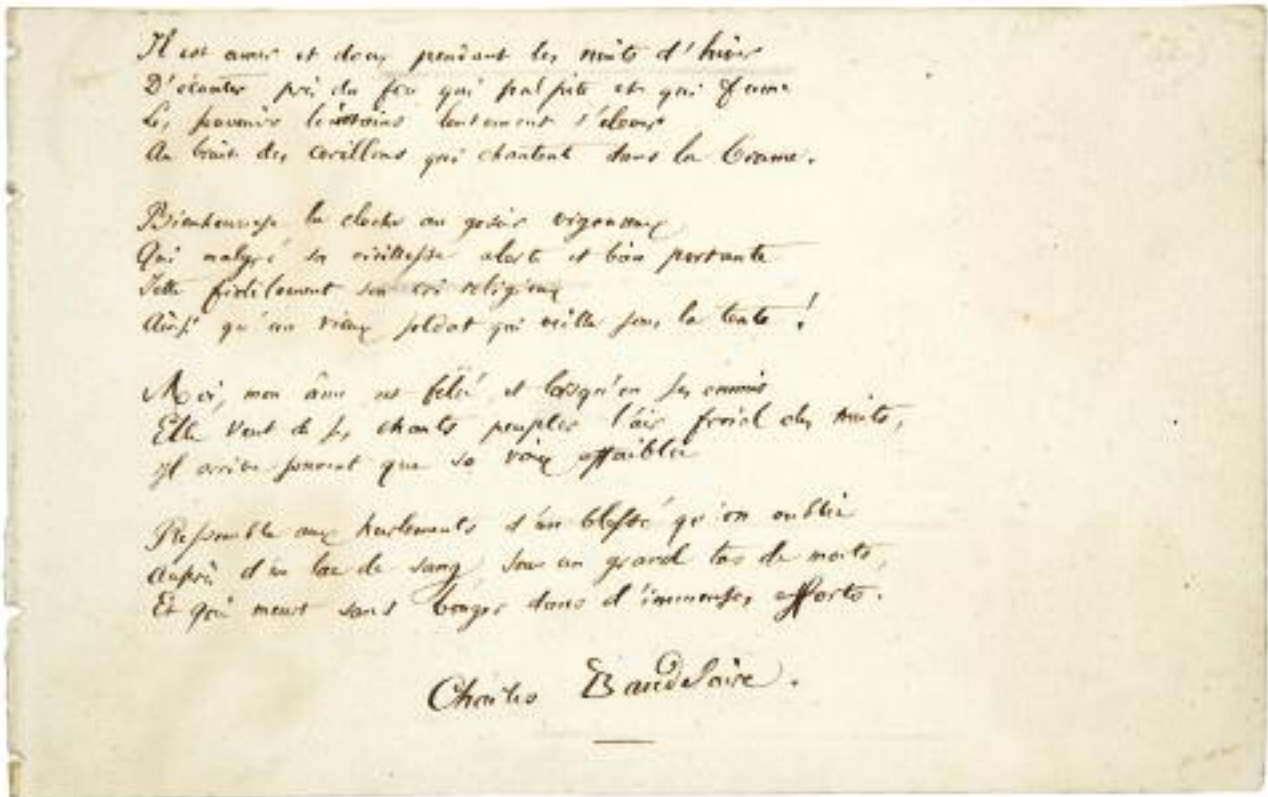 Il est amer et doux pendant les nuits d'hiver
D'écouter près du feu qui palpite et qui fume
Les souvenirs lointains lentement s'élever
Au bruit des carillons qui chantent dans la brume.
Bienheureuse la cloche au gosier vigoureux
Qui malgré sa vieillesse alerte et bien portante
Jette fidèlement son cri religieux
Ainsi qu'un vieux soldat qui veille sous la tente !
Moi, mon âme est fêlée et lorsqu'en ses ennuis
Elle veut de ses chants peupler l'air froid des nuits,
Il arrive souvent que sa voix affaiblie
Ressemble aux hurlements d'un blessé qu'on oublie
Auprès d'un lac de sang, sous un grand tas de morts,
Et qui meurt sans bouger dans d'immenses efforts.
Charles Baudelaire.